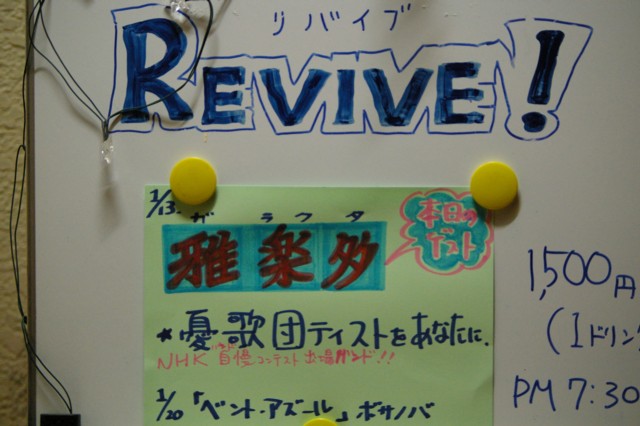 リバイブ
REVIVE!
1/13.
ガラクタ
雅楽多
本日の
ゲスト
1,500円
(1ドリン
*憂歌団ティストをあなたに.
NHK 自慢コンテスト出場バンド!!
PM 7:30
1/20 「ベント・アズール」ボサノバ